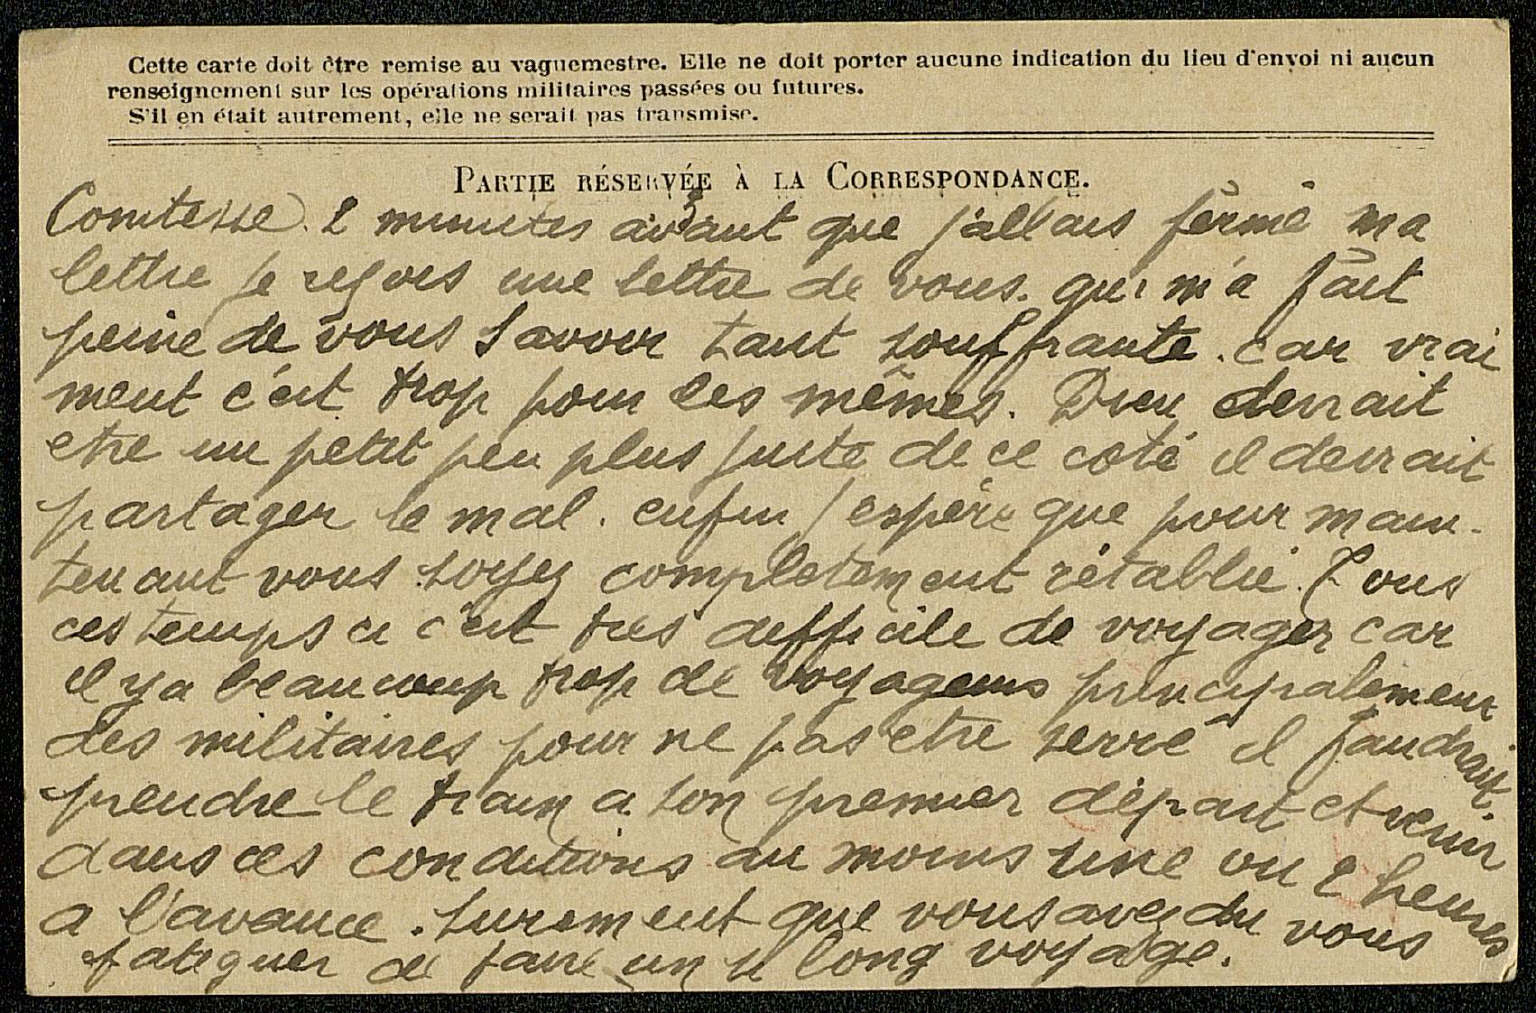 Cette carte doit être remise au vaguemestre. Elle ne doit porter aucune indication du lieu d'envoi ni aucun
renseignement sur les opérations militaires passées ou futures.
S'il en était autrement, elle ne serait pas transmise.
PARTIE RÉSERVÉE À LA CORRESPONDANCE.
Comtesse. 2 minutes avant que j'allais fermé ma
lettre je reçois une lettre de vous. qui m'a fait
peine de vous savoir tant souffrante. car vrai
ment c'est trop pour les mêmes. Dieu devrait
etre un petit peu plus juste de ce coté il devrait
partager le mal. enfin j'espère que pour main-
tenant vous soyez completement rétablie. Tous
ces temps ci c'est tres difficile de voyager car
il y a beaucoup trop de voyageurs principalement
des militaires pour ne pas etre serré il faudrait
prendre le train a son premier départ et venir
dans ces conditions au moins une ou 2 heures
a l'avance. surement que vous avez du vous
fatiguer de faire un si long voyage.